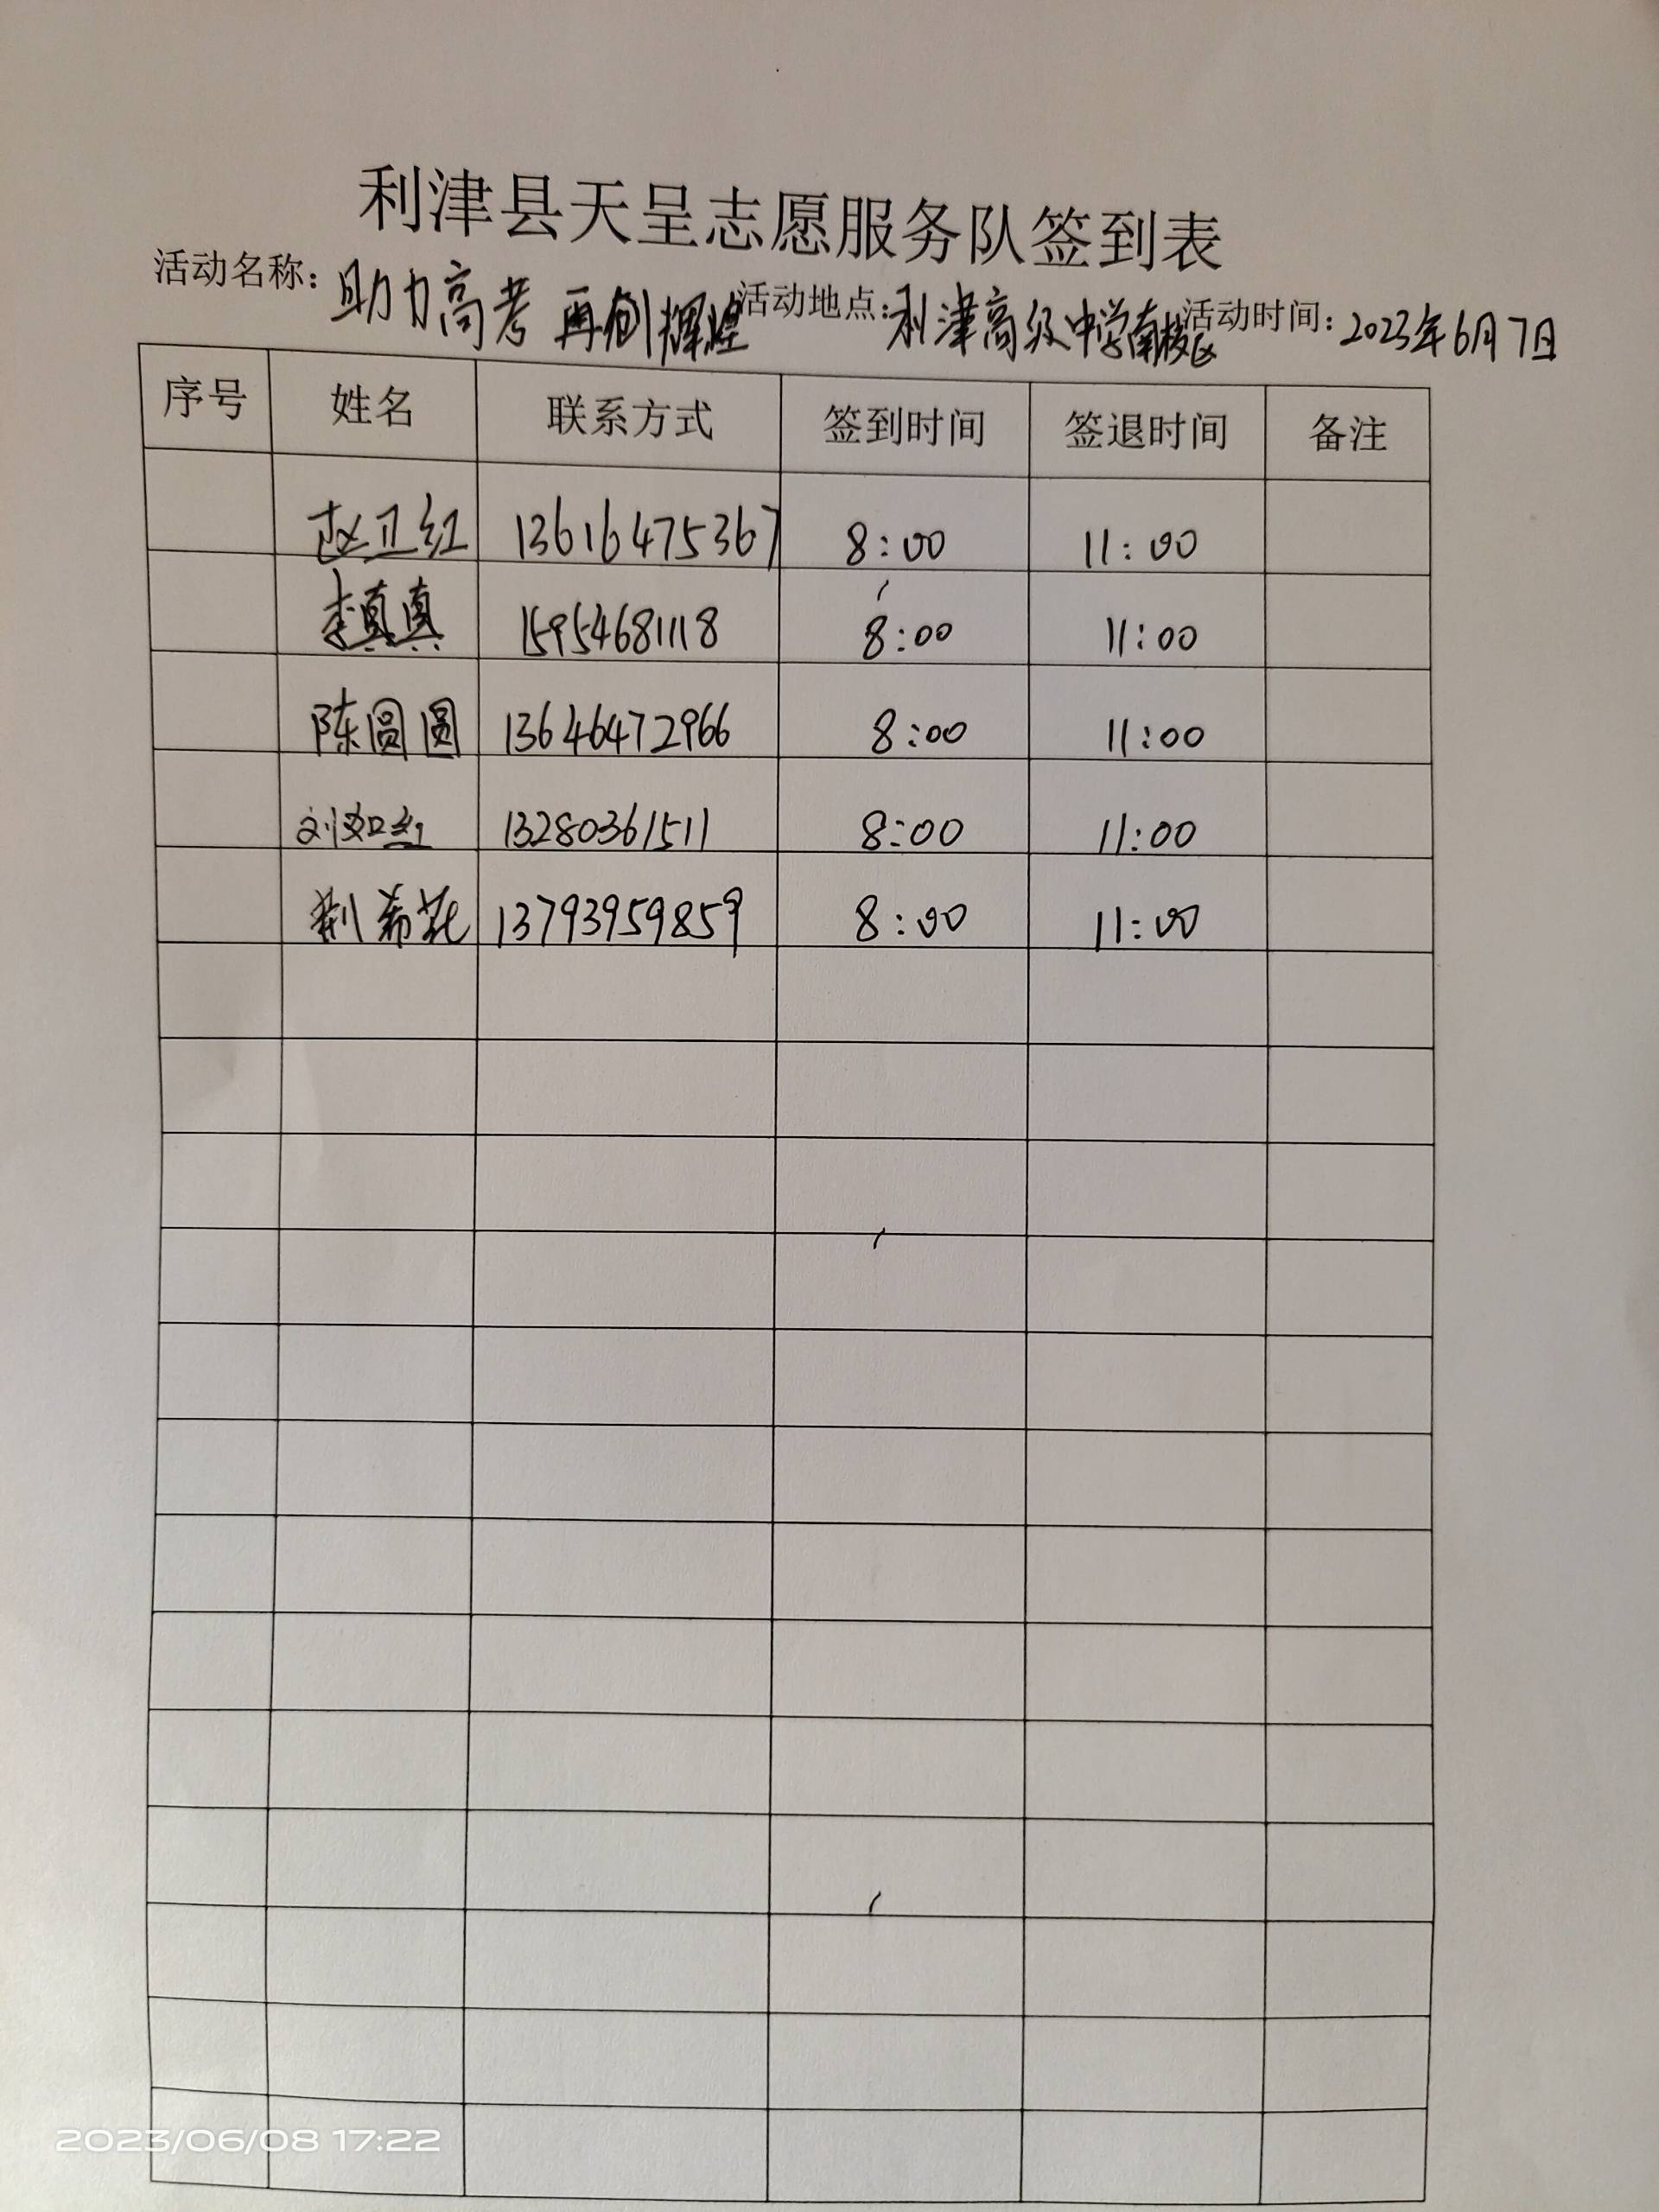 利津县天呈志愿服务队签到表
活动名称：助力高考 再创辉煌 活动地点：利津高级中学南校区 活动时间：2023年6月7日
序号 姓名 联系方式 签到时间 签退时间 备注
赵卫红 13616475367 8:00 11:00
李真真 15954681118 8:00 11:00
陈圆圆 13646472966 8:00 11:00
刘如红 13280361511 8:00 11:00
荆希花 13793959859 8:00 11:00
2023/06/08 17:22